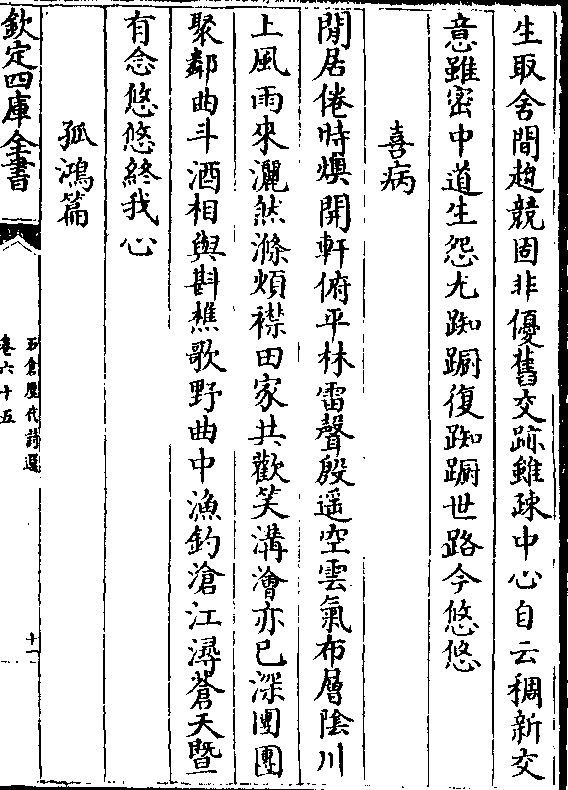 生取舍間趋競固非優舊交跡雖疎中心自云稠新交
意雖密中道生怨尤踟蹰復踟蹰世路今悠悠
喜病
閒居倦時燠開軒俯平林雷聲殷遥空雲氣布層陰川
上風雨來灑然滌煩襟田家共歡笑溝澮亦已深團團
聚鄰曲斗酒相與斟樵歌野曲中漁釣滄江潯蒼天暨
有念悠悠終我心
孤鴻篇
欽定四庫全書
石倉歷代詩選
卷六十五
十一